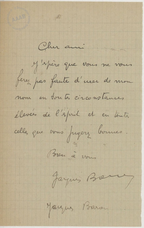 Cher ami
J'espère que vous ne vous
ferez pas faute d'user de mon
nom en toute circonstances
élever de l'esprit et en toute
celle que vous jugerez bonnes
Bien à vous
Jacques Baron
Jacques Baron